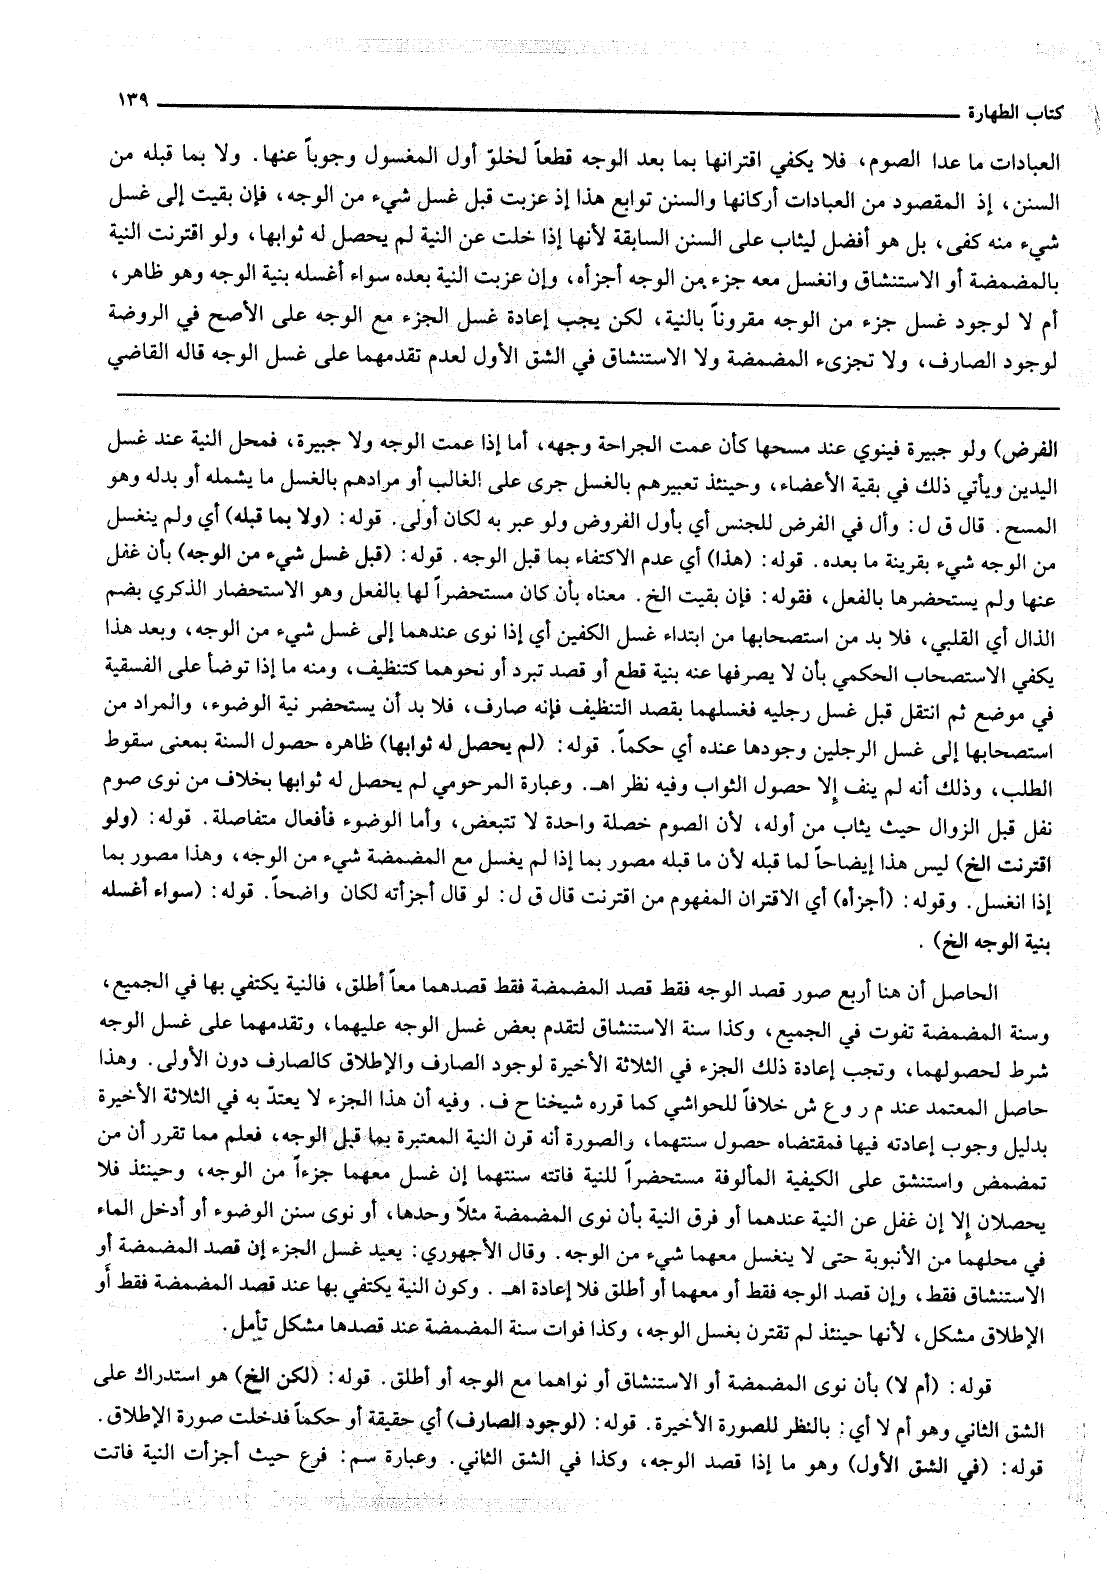 كتاب الطهارة ١٣٩
العبادات ما عدا الصوم، فلا يكفي اقترانها بما بعد الوجه قطعاً لخلوّ أول المغسول وجوباً عنها. ولا بما قبله من
السنن، إذ المقصود من العبادات أركانها والسنن توابع هذا إذ عزبت قبل غسل شيء من الوجه، فإن بقيت إلى غسل
شيء منه كفى، بل هو أفضل ليثاب على السنن السابقة لأنها إذا خلت عن النية لم يحصل له ثوابها، ولو اقترنت النية
بالمضمضة أو الاستنشاق وانغسل معه جزء من الوجه أجزأه، وإن عزبت النية بعده سواء أغسله بنية الوجه وهو ظاهر،
أم لا لوجود غسل جزء من الوجه مقروناً بالنية، لكن يجب إعادة غسل الجزء مع الوجه على الأصح في الروضة
لوجود الصارف، ولا تجزىء المضمضة ولا الاستنشاق في الشق الأول لعدم تقدمهما على غسل الوجه قاله القاضي
الفرض) ولو جبيرة فينوي عند مسحها كأن عمت الجراحة وجهه، أما إذا عمت الوجه ولا جبيرة، فمحل النية عند غسل
اليدين ويأتي ذلك في بقية الأعضاء، وحينئذ تعبيرهم بالغسل جرى على الغالب أو مرادهم بالغسل ما يشمله أو بدله وهو
المسح. قال ق ل: وأل في الفرض للجنس أي بأول الفروض ولو عبر به لكان أولى. قوله: (ولا بما قبله) أي ولم ينغسل
من الوجه شيء بقرينة ما بعده. قوله: (هذا) أي عدم الاكتفاء بما قبل الوجه. قوله: (قبل غسل شيء من الوجه) بأن غفل
عنها ولم يستحضرها بالفعل، فقوله: فإن بقيت الخ. معناه بأن كان مستحضراً لها بالفعل وهو الاستحضار الذكري بضم
الذال أي القلبي، فلا بد من استصحابها من ابتداء غسل الكفين أي إذا نوى عندهما إلى غسل شيء من الوجه، وبعد هذا
يكفي الاستصحاب الحكمي بأن لا يصرفها عنه بنية قطع أو قصد تبرد أو نحوهما كتنظيف، ومنه ما إذا توضأ على الفسقية
في موضع ثم انتقل قبل غسل رجليه فغسلهما بقصد التنظيف فإنه صارف، فلا بد أن يستحضر نية الوضوء، والمراد من
استصحابها إلى غسل الرجلين وجودها عنده أي حكماً. قوله: (لم يحصل له ثوابها) ظاهره حصول السنة بمعنى سقوط
الطلب، وذلك أنه لم ينف إلا حصول الثواب وفيه نظر اهـ. وعبارة المرحومي لم يحصل له ثوابها بخلاف من نوى صوم
نفل قبل الزوال حيث يثاب من أوله، لأن الصوم خصلة واحدة لا تتبعض، وأما الوضوء فأفعال متفاصلة. قوله: (ولو
اقترنت الخ) ليس هذا إيضاحاً لما قبله لأن ما قبله مصور بما إذا لم يغسل مع المضمضة شيء من الوجه، وهذا مصور بما
إذا انغسل. وقوله: (أجزأه) أي الاقتران المفهوم من اقترنت قال ق ل: لو قال أجزأته لكان واضحاً. قوله: (سواء أغسله
بنية الوجه الخ).
الحاصل أن هنا أربع صور قصد الوجه فقط قصد المضمضة فقط قصدهما معاً أطلق، فالنية يكتفي بها في الجميع،
وسنة المضمضة تفوت في الجميع، وكذا سنة الاستنشاق لتقدم بعض غسل الوجه عليهما، وتقدمهما على غسل الوجه
شرط لحصولهما، وتجب إعادة ذلك الجزء في الثلاثة الأخيرة لوجود الصارف والإطلاق كالصارف دون الأولى. وهذا
حاصل المعتمد عند م ر و ع ش خلافاً للحواشي كما قرره شيخنا ح ف. وفيه أن هذا الجزء لا يعتدّ به في الثلاثة الأخيرة
بدليل وجوب إعادته فيها فمقتضاه حصول سنتهما، والصورة أنه قرن النية المعتبرة بما قبل الوجه، فعلم مما تقرر أن من
تمضمض واستنشق على الكيفية المألوفة مستحضراً للنية فاتته سنتهما إن غسل معهما جزءاً من الوجه، وحينئذ فلا
يحصلان إلا إن غفل عن النية عندهما أو فرق النية بأن نوى المضمضة مثلاً وحدها، أو نوى سنن الوضوء أو أدخل الماء
في محلهما من الأنبوبة حتى لا ينغسل معهما شيء من الوجه. وقال الأجهوري: يعيد غسل الجزء إن قصد المضمضة أو
الاستنشاق فقط، وإن قصد الوجه فقط أو معهما أو أطلق فلا إعادة اهـ. وكون النية يكتفي بها عند قصد المضمضة فقط أو
الإطلاق مشكل، لأنها حينئذ لم تقترن بغسل الوجه، وكذا فوات سنة المضمضة عند قصدها مشكل تأمل.
قوله: (أم لا) بأن نوى المضمضة أو الاستنشاق أو نواهما مع الوجه أو أطلق. قوله: (لكن الخ) هو استدراك على
الشق الثاني وهو أم لا أي: بالنظر للصورة الأخيرة. قوله: (لوجود الصارف) أي حقيقة أو حكماً فدخلت صورة الإطلاق.
قوله: (في الشق الأول) وهو ما إذا قصد الوجه، وكذا في الشق الثاني. وعبارة سم: فرع حيث أجزأت النية فاتت